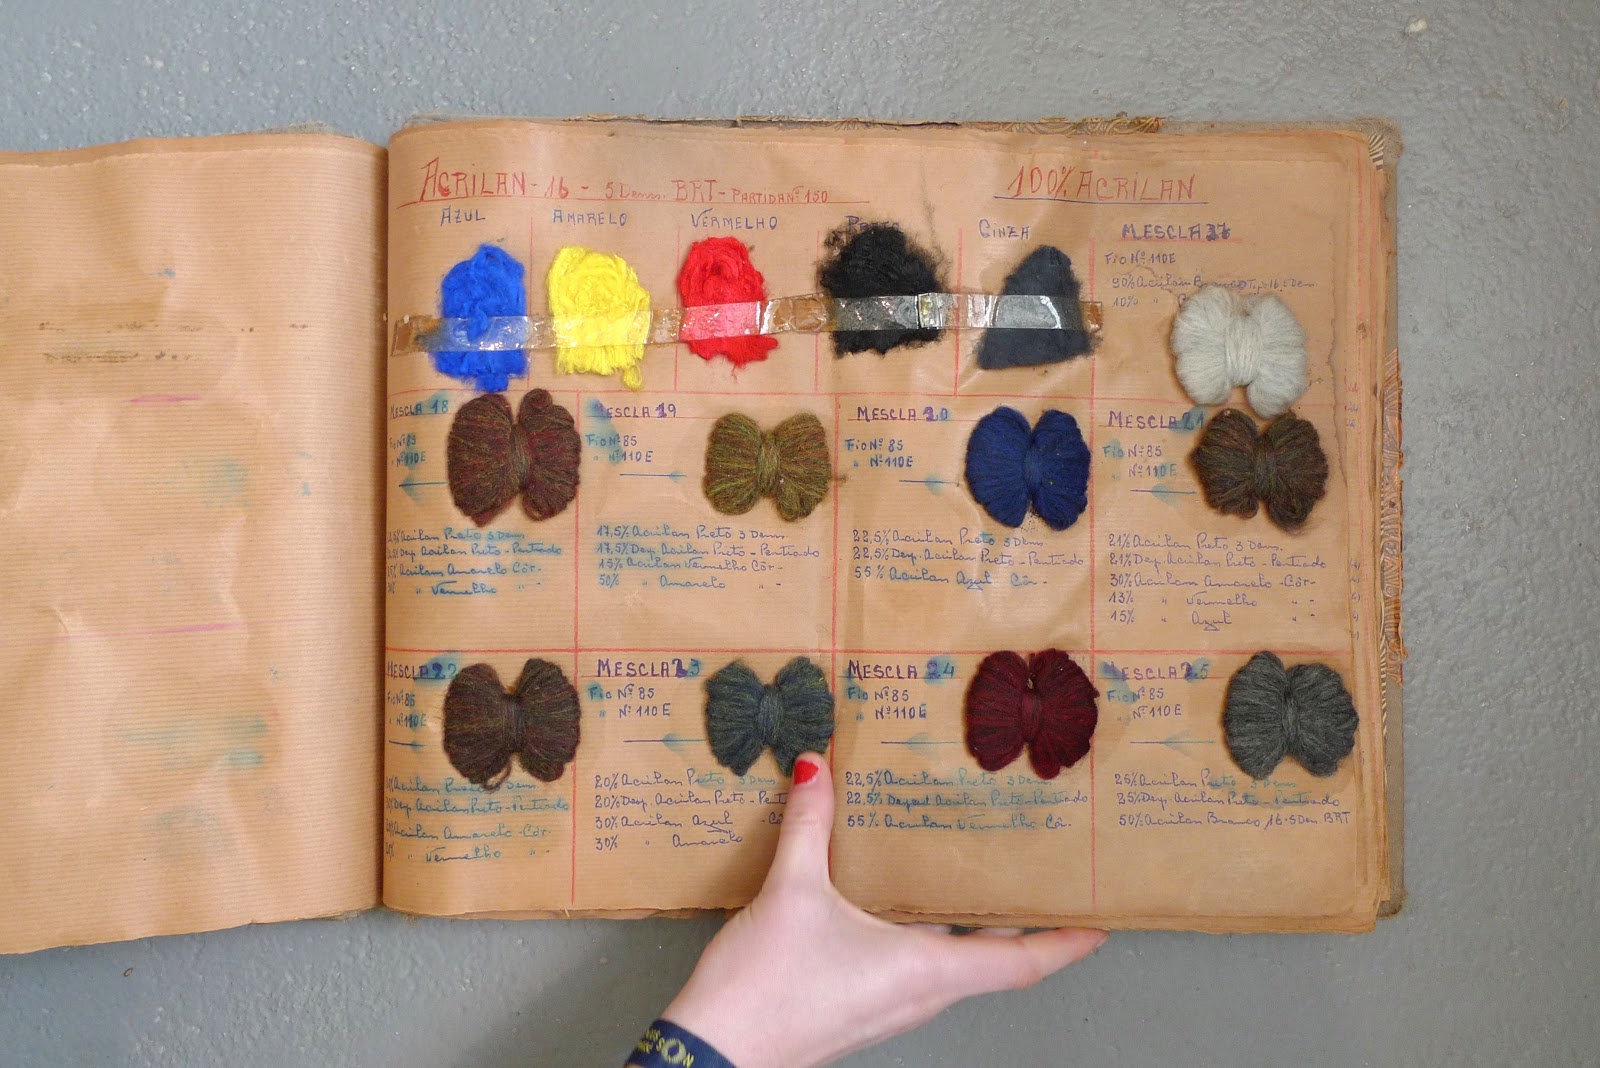 ACRILAN - 16 - 5 Dens. BRT - PARTIDA Nº 150
100% ACRILAN
AZUL
AMARELO
VERMELHO
CINZA
MESCLA
Fio Nº 110E
90% Acrilan Branco Tipo 16-5 Den
10% "
MESCLA 18
Fio Nº 85
" Nº 110E
Acrilan Preto 3 Dens
Desp. Acrilan Preto - Pentiado
Acrilan Amarelo Côr-
" Vermelho " -
MESCLA 19
Fio Nº 85
" Nº 110E
17,5% Acrilan Preto 3 Dens.
17,5% Desp. Acrilan Preto - Pentiado
15% Acrilan Vermelho Côr-
50% " Amarelo " -
MESCLA 20
Fio Nº 85
" Nº 110E
22,5% Acrilan Preto 3 Dens.
22,5% Desp. Acrilan Preto - Pentiado
55% Acrilan Azul Côr -
MESCLA 21
Fio Nº 85
" Nº 110E
21% Acrilan Preto 3 Dens.
21% Desp. Acrilan Preto - Pentiado
30% Acrilan Amarelo - Côr-
13% " Vermelho " -
15% " Azul " -
MESCLA 22
Fio Nº 85
" Nº 110E
Acrilan Preto 3 Dens
Desp. Acrilan Preto - Pentiado
Acrilan Amarelo - Côr-
" Vermelho " -
MESCLA 23
Fio Nº 85
" Nº 110E
20% Acrilan Preto 3 Dens.
20% Desp. Acrilan Preto -
30% Acrilan Azul
30% " Amarelo
MESCLA 24
Fio Nº 85
" Nº 110E
22,5% Acrilan Preto 3 Dens
22,5% Desped. Acrilan Preto - Pentiado
55% Acrilan Vermelho - Côr.
MESCLA 25
Fio Nº 85
" Nº 110E
25% Acrilan Preto 3 Dens.
25% Desp. Acrilan Preto - Pentiado
50% Acrilan Branco 16-5 Den. BRT